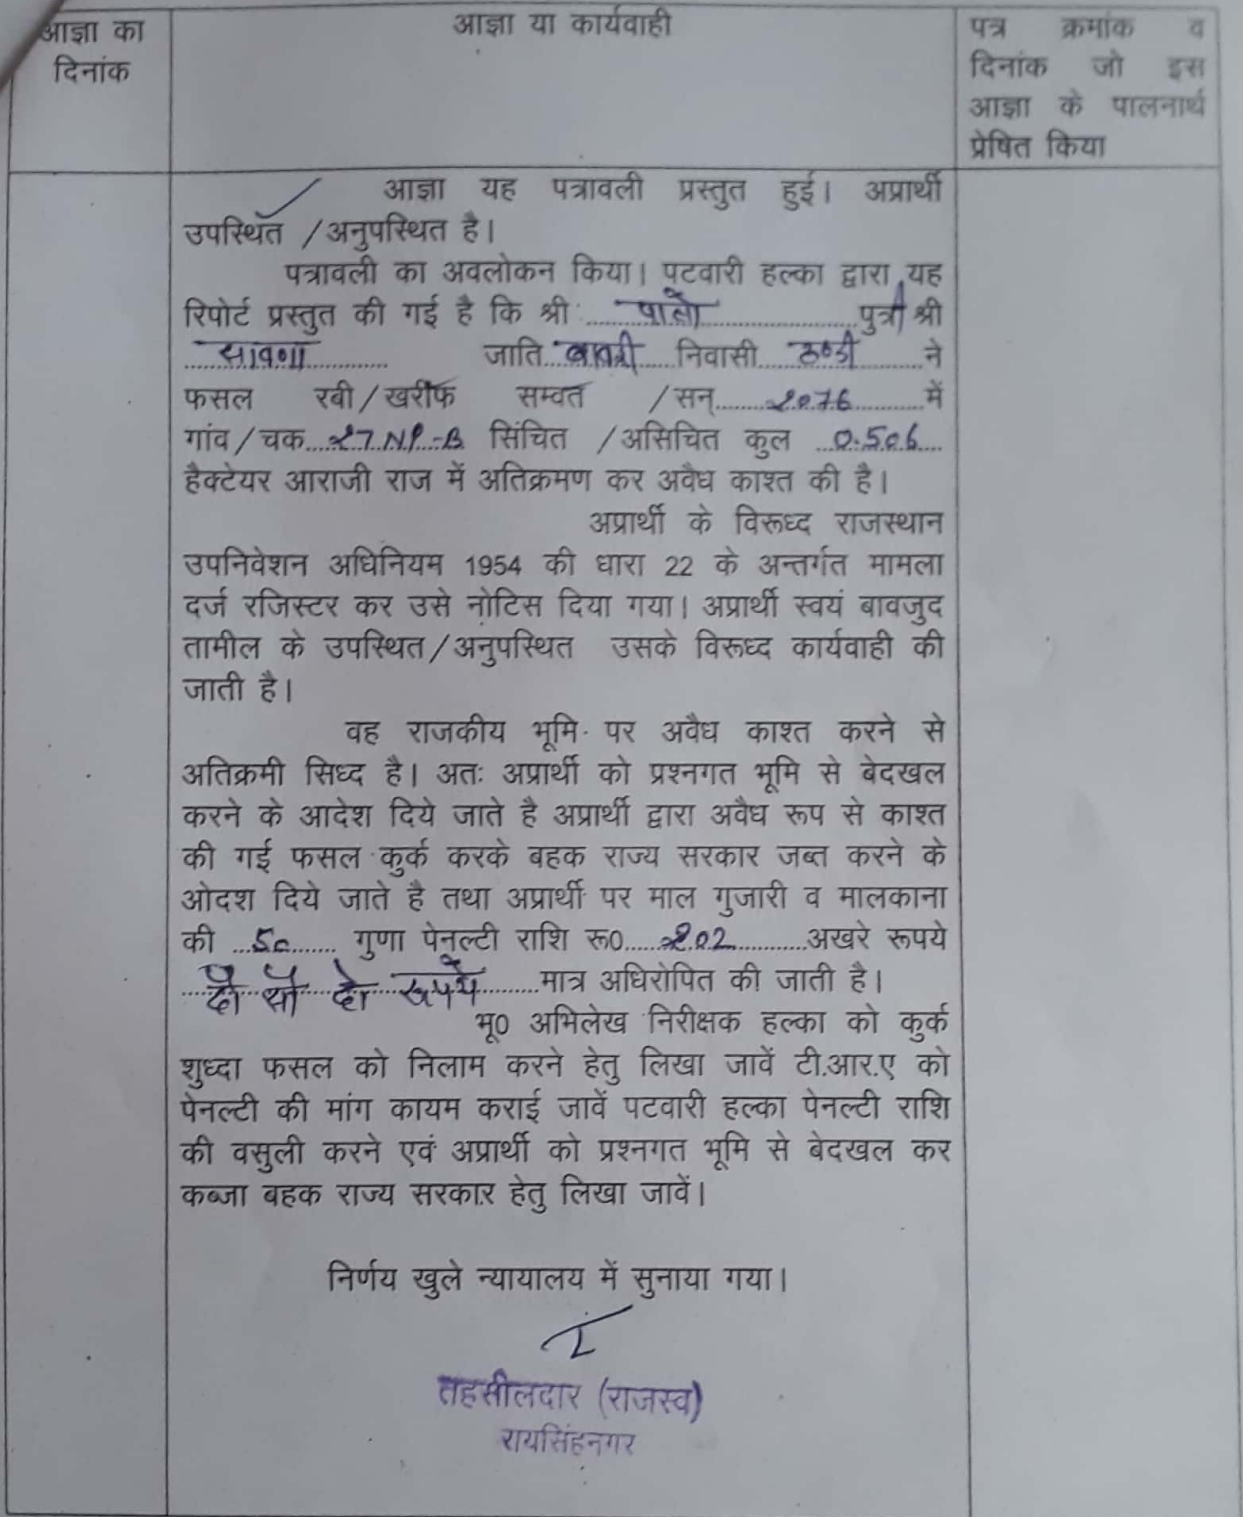 आज्ञा का
दिनांक
आज्ञा या कार्यवाही
पत्र क्रमांक व
दिनांक जो इस
आज्ञा के पालनार्थ
प्रेषित किया
आज्ञा यह पत्रावली प्रस्तुत हुई। अप्रार्थी
उपस्थित /अनुपस्थित है।
पत्रावली का अवलोकन किया। पटवारी हल्का द्वारा यह
रिपोर्ट प्रस्तुत की गई है कि श्री पालो पुत्री श्री
सावणा जाति बावरी निवासी ठण्डी ने
फसल रबी/खरीफ सम्वत /सन् 2076 में
गांव/चक 27 NP-B सिंचित /असिचित कुल 0.506
हैक्टेयर आराजी राज में अतिक्रमण कर अवैध काश्त की है।
अप्रार्थी के विरूध्द राजस्थान
उपनिवेशन अधिनियम 1954 की धारा 22 के अन्तर्गत मामला
दर्ज रजिस्टर कर उसे नोटिस दिया गया। अप्रार्थी स्वयं बावजुद
तामील के उपस्थित/अनुपस्थित उसके विरूध्द कार्यवाही की
जाती है।
वह राजकीय भूमि पर अवैध काश्त करने से
अतिक्रमी सिध्द है। अतः अप्रार्थी को प्रश्नगत भूमि से बेदखल
करने के आदेश दिये जाते है अप्रार्थी द्वारा अवैध रूप से काश्त
की गई फसल कुर्क करके बहक राज्य सरकार जब्त करने के
ओदश दिये जाते है तथा अप्रार्थी पर माल गुजारी व मालकाना
की 50 गुणा पेनल्टी राशि रू0 202 अखरे रूपये
दो सौ दो रूपये मात्र अधिरोपित की जाती है।
भू0 अभिलेख निरीक्षक हल्का को कुर्क
शुध्दा फसल को निलाम करने हेतु लिखा जावें टी.आर.ए को
पेनल्टी की मांग कायम कराई जावें पटवारी हल्का पेनल्टी राशि
की वसुली करने एवं अप्रार्थी को प्रश्नगत भूमि से बेदखल कर
कब्जा बहक राज्य सरकार हेतु लिखा जावें।
निर्णय खुले न्यायालय में सुनाया गया।
तहसीलदार (राजस्व)
रायसिंहनगर